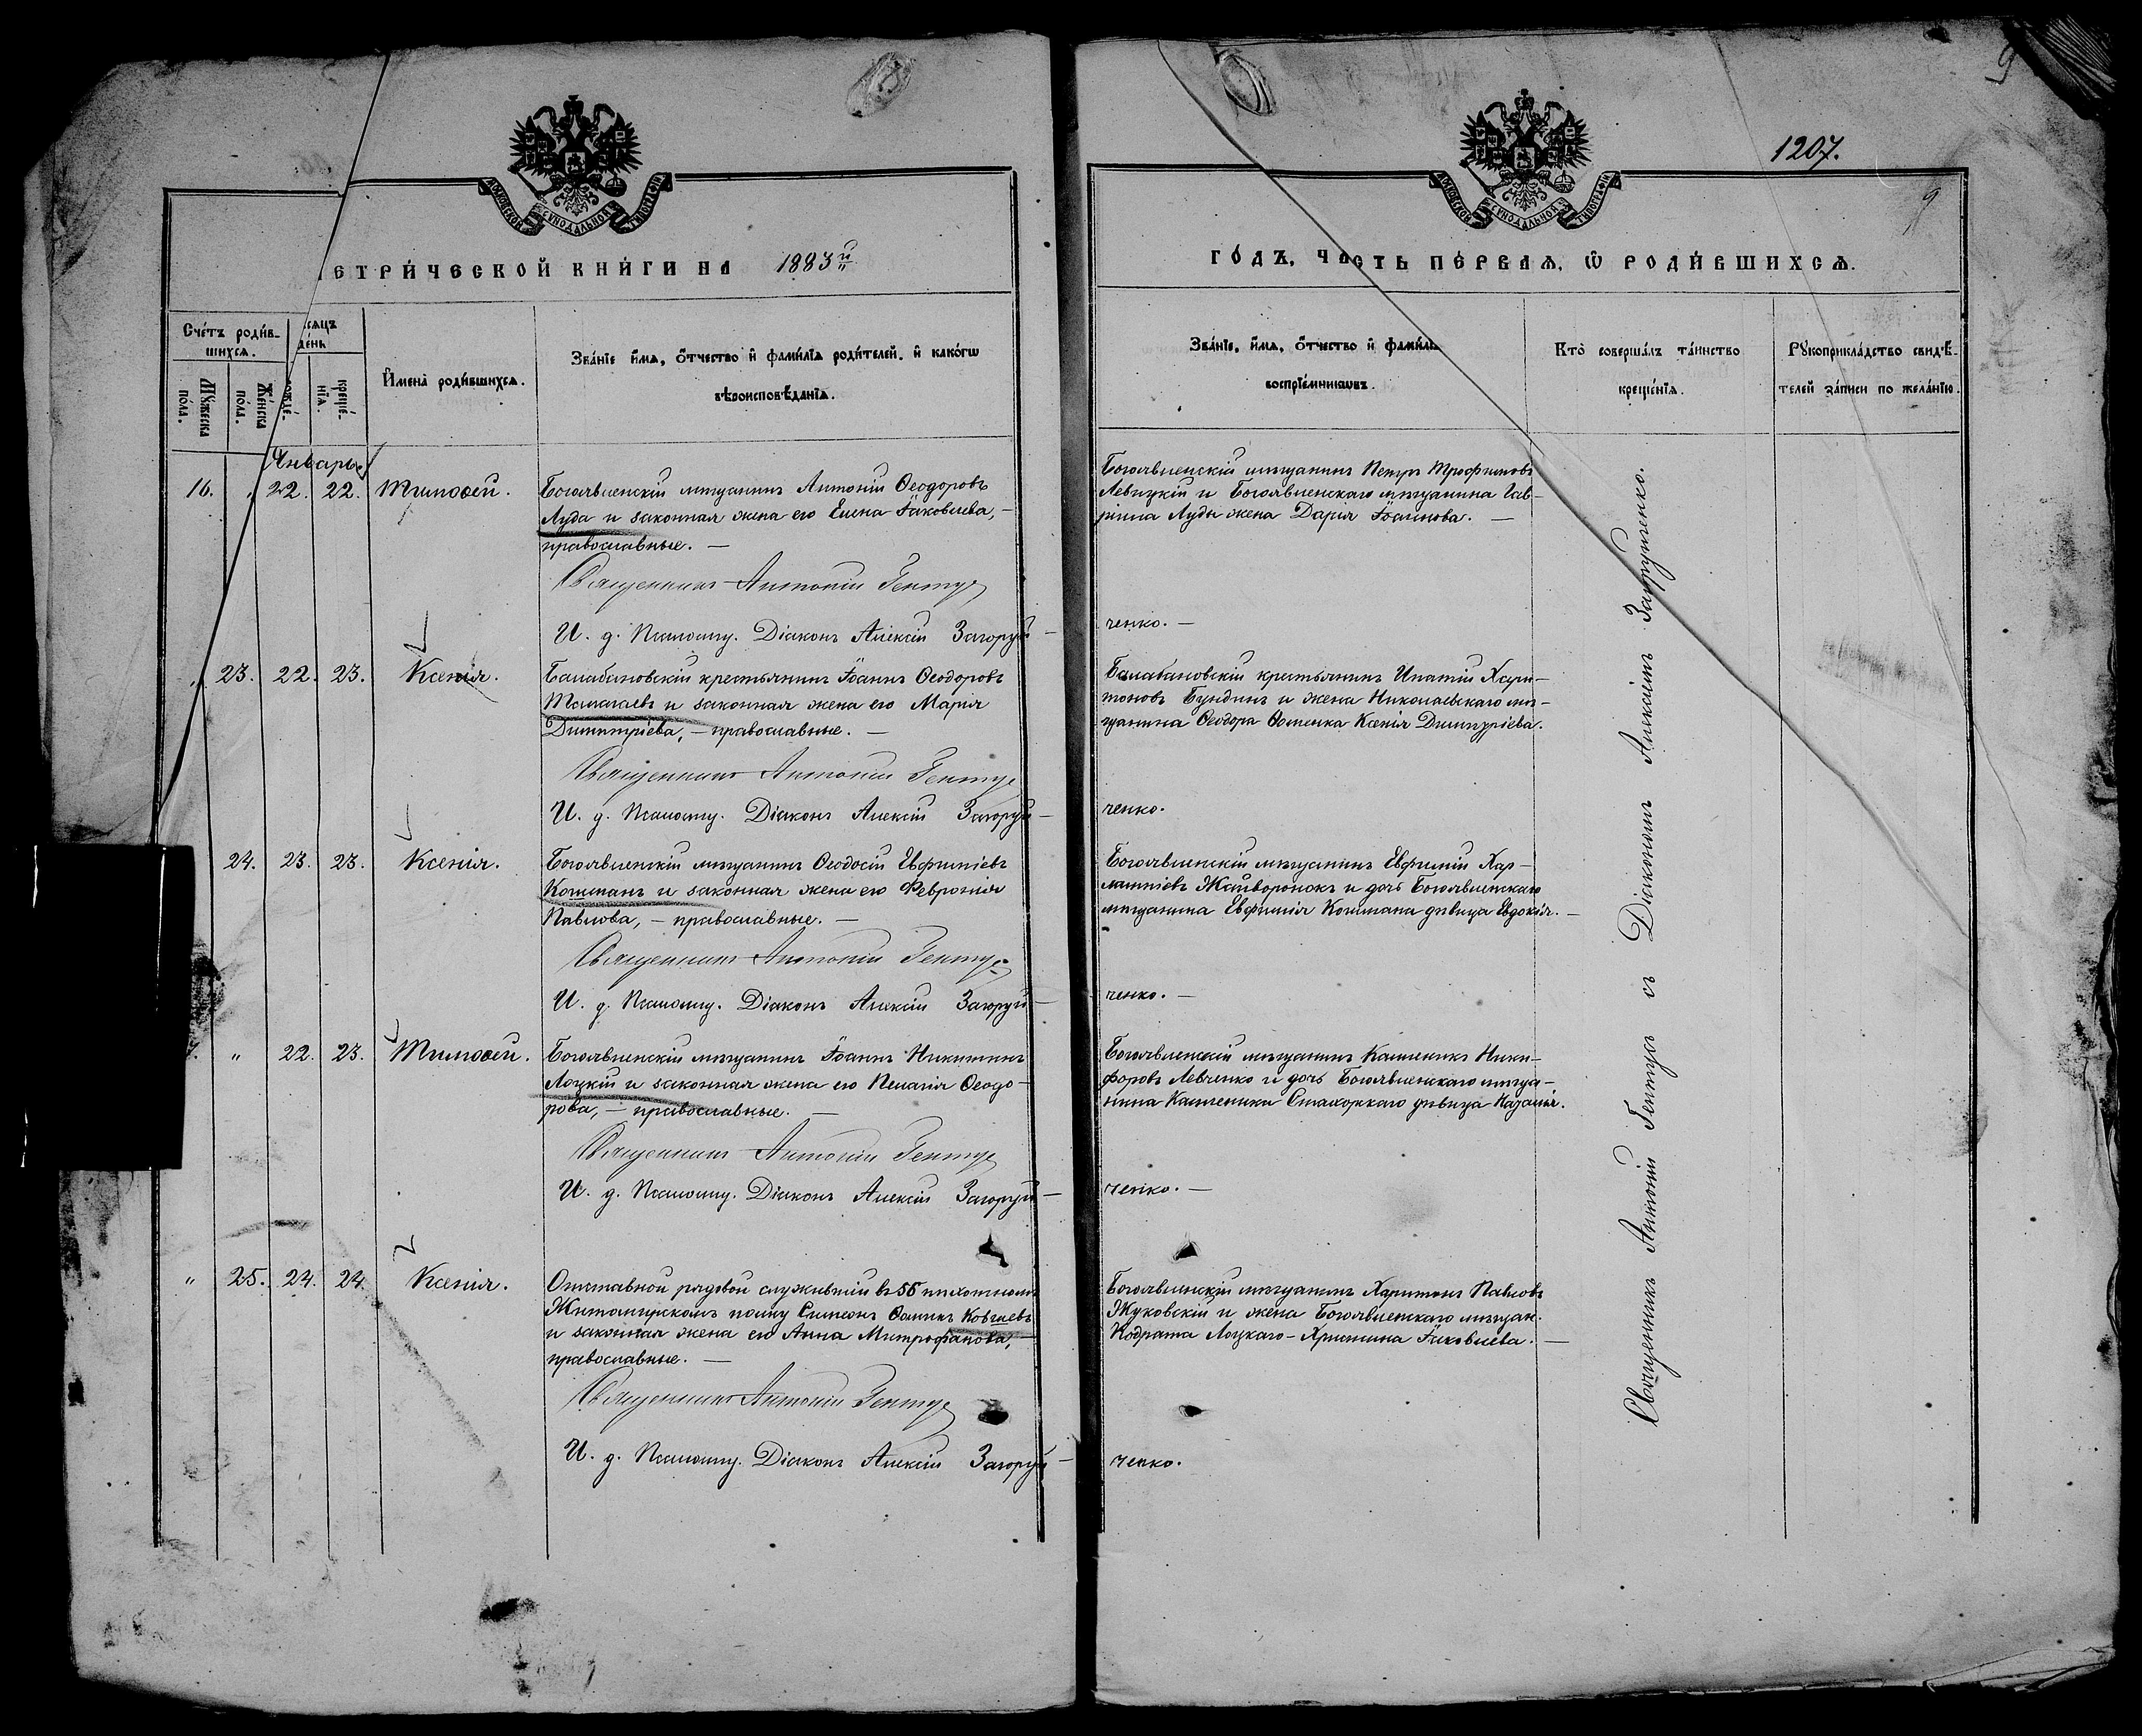 9
1207.
9
МОСКОВСКОЙ СѴНОДАЛЬНОЙ ТѴПОГРАФІИ
МОСКОВСКОЙ СѴНОДАЛЬНОЙ ТѴПОГРАФІИ
ЕТРИ́ЧЕСКОЙ КНИ́ГИ НА 1883й
ГО́ДЪ, ЧАСТЬ ПЕ́РВАѦ, Ѡ҆ РОДИ́ВШИХСѦ.
Сче́тъ роди́в-
шихсѧ.
Мꙋ́жеска по́ла.
Же́нска по́ла.
сѧцъ
де́нь
ожде́-
креще́-
нїѧ.
И҆мена̀ роди́вшихсѧ.
Зва́нїе и҆́мѧ, ѻ҆́тчество и҆ фами́лїѧ роди́телей, и҆ како́гѡ
вѣроисповѣ́данїѧ.
Зва́нїе, и҆́мѧ, ѻ҆́тчество и҆ фами́лї
воспрїе́мникѡвъ.
Кто̀ соверша́лъ та́инство
креще́нїѧ.
Рꙋкоприкла́дство свидѣ́-
телей за́писи по жела́нїю.
Январь
16. „ 22. 22. Тимоѳей.
Богоявленскій мѣщанинъ Антоній Ѳеодоровъ
Луда и законная жена его Елена Іаковлева, —
православные. —
Священникъ Антоній Гентуⷭ
И. д. Псаломщ. Діаконъ Алексій Загоруй-
Богоявленскій мѣщанинъ Петръ Трофимовъ
Левицкій и Богоявленскаго мѣщанина Гав-
ріила Луды жена Дарія Іоаннова. —
ченко. —
„ 23. 22. 23. Ксенія.
Балабановскій крестьянинъ Іоаннъ Ѳеодоровъ
и законная жена его Марія
Димитріева, — православные. —
Священникъ Антоній
И. д. Псаломщ. Діаконъ Алексій Загоруй-
Балабановскій крестьянинъ Ипатій Хари-
тоновъ и жена Николаевскаго мѣ-
щанина Ѳеодора Ксенія Димитріева.
ченко.
24. 23. 23. Ксенія.
Богоявленскій мѣщанинъ Ѳеодосій Евфиміевъ
Кошманъ и законная жена его Февронія
Павлова, — православные. —
Священникъ Антоній
И. д. Псаломщ. Діаконъ Алексій Загоруй-
Богоявленскій мѣщанинъ Евфимій Хар-
лампіевъ Жайворонокъ и дочь Богоявленскаго
мѣщанина Евфимія Кошмана дѣвица Евдокія. —
ченко. —
„ 22. 23. Тимоѳей.
Богоявленскій мѣщанинъ Іоаннъ Никитинъ
Лоцкій и законная жена его Пелагія Ѳеодо-
рова, — православные. —
Священникъ Антоній
И. д. Псаломщ. Діаконъ Алексій Загоруй-
Богоявленскій мѣщанинъ Каленикъ Ники-
форовъ Левченко и дочь Богоявленскаго мѣща-
нина Каленика дѣвица
ченко. —
„ 25. 24. 24. Ксенія.
Отставной рядовой служившій въ 55 пѣхотномъ
Житомирскомъ полку Симеонъ Ѳоминъ
и законная жена его Анна Митрофанова, —
православные. —
Священникъ Антоній
И. д. Псаломщ. Діаконъ Алексій Загоруй-
Богоявленскій мѣщанинъ Харитонъ Павловъ
Жуковскій и жена Богоявленскаго мѣщан.
Кодрата Лоцкаго - Христина Іаковлева. —
ченко.
Священникъ Антоній съ Діакономъ Алексіемъ Загоруйченко.